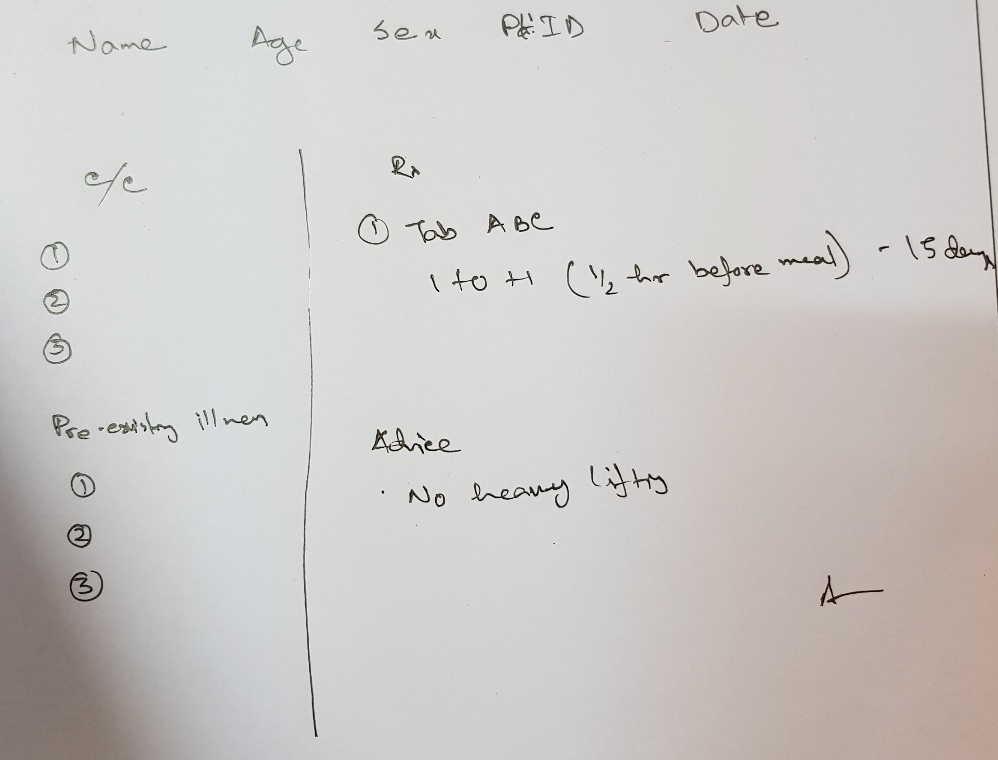 Name Age Sex Pt ID Date
c/c
①
②
③
Pre-existing illness
①
②
③
Rx
① Tab ABC
1 + 0 + 1 (1/2 hr before meal) - 15 days
Advice
· No heavy lifting